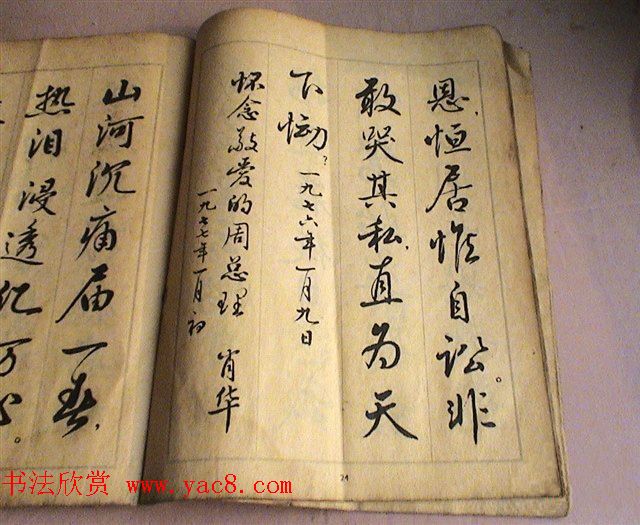 恩,恒居惟自讼。非
敢哭其私,直为天
下恸?一九七六年一月九日
怀念敬爱的周总理 肖华
一九七七年一月初
24
山河沉痛届一春,
热泪浸透亿万心。
书法欣赏 www.yac8.com